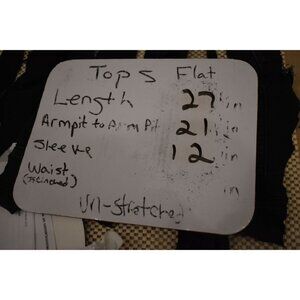 Tops Flat
Length 27 in
Armpit to Arm Pit 21 in
Sleeve 12 in
Waist in
(If Cinched)
Un-Stretched